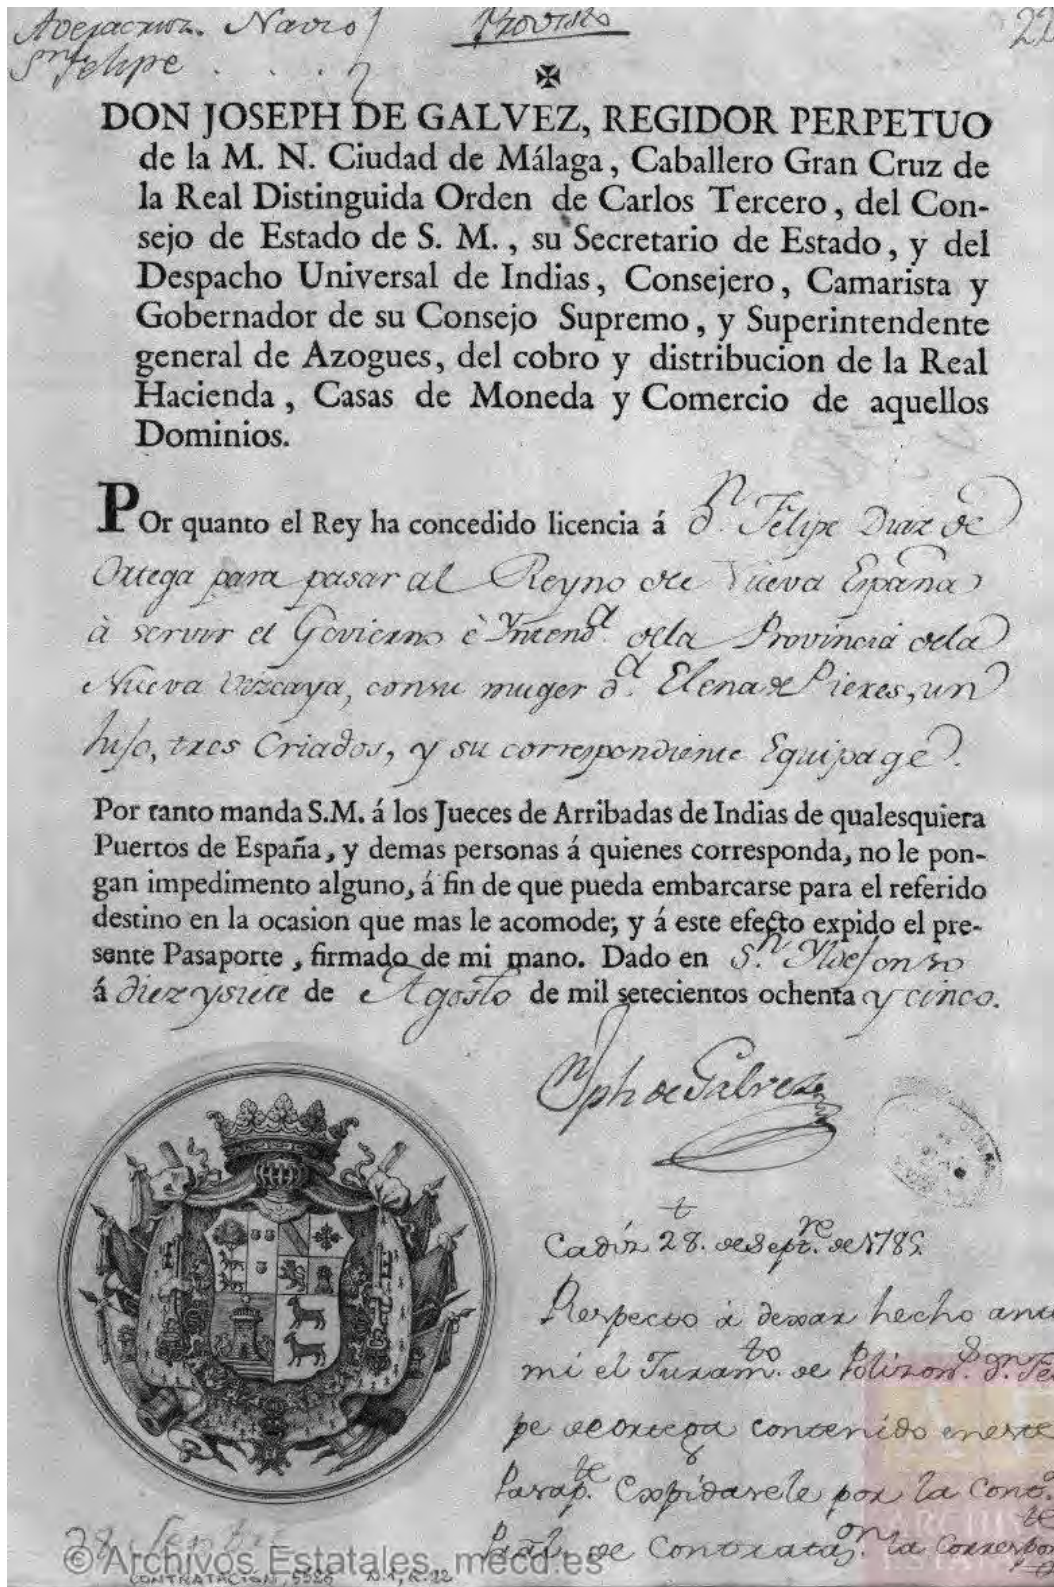 Provisto
22
Sⁿ Felipe . . .
DON JOSEPH DE GALVEZ, REGIDOR PERPETUO
de la M. N. Ciudad de Málaga, Caballero Gran Cruz de
la Real Distinguida Orden de Carlos Tercero, del Con-
sejo de Estado de S. M., su Secretario de Estado, y del
Despacho Universal de Indias, Consejero, Camarista y
Gobernador de su Consejo Supremo, y Superintendente
general de Azogues, del cobro y distribucion de la Real
Hacienda, Casas de Moneda y Comercio de aquellos
Dominios.
POr quanto el Rey ha concedido licencia á dⁿ. Felipe Diaz de
Ortega para pasar al Reyno de Nueva España
à servir el Govierno è Yntendª. dela Provincia dela
Nueva Vizcaya, consu muger dª. Elena de Pieres, un
hijo, tres Criados, y su correspondiente Equipage.
Por tanto manda S.M. á los Jueces de Arribadas de Indias de qualesquiera
Puertos de España, y demas personas á quienes corresponda, no le pon-
gan impedimento alguno, á fin de que pueda embarcarse para el referido
destino en la ocasion que mas le acomode; y á este efecto expido el pre-
sente Pasaporte, firmado de mi mano. Dado en Sⁿ. Yldefonso
á diez y siete de Agosto de mil setecientos ochenta y cinco.
Jph de Galvez
Cadiz 28. de Septre. de 1785.
Respecto à dexar hecho ante
mi el Juramto. de Polizon. dⁿ. Feli
pe de Ortega contenido eneste
Pasapte. Expidasele por la Conta.
Pral. de Contratacon. la Correspon
28 Sepbre
© Archivos Estatales, mecd.es
CONTRATACION, 5526 N.1, R.22